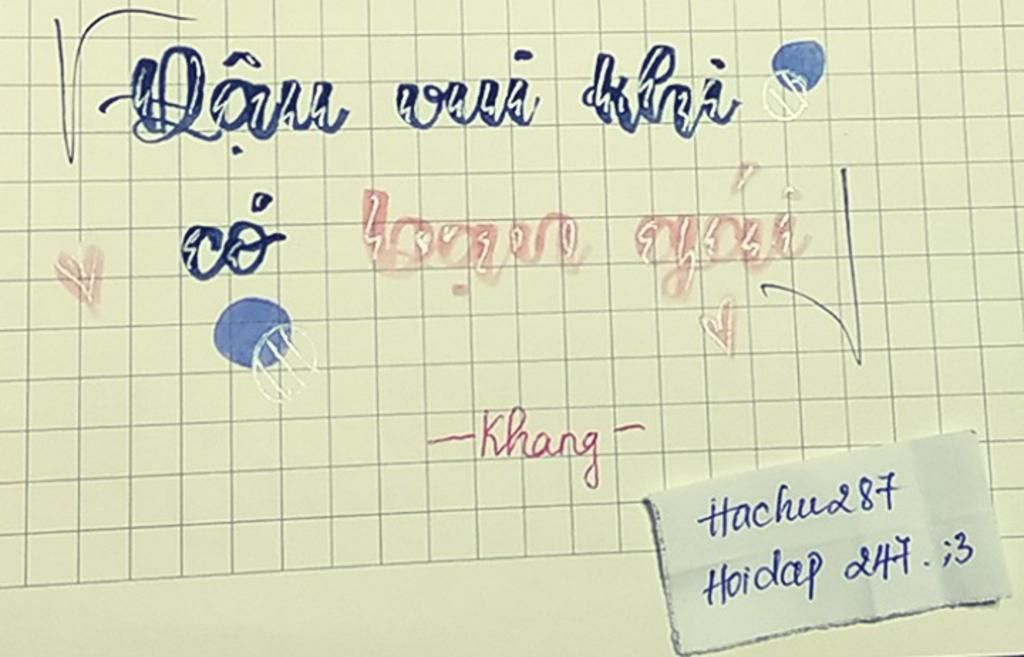 Đậu vui khi
có bạn gái
-Khang-
Hachu287
Hoidap 247. ;3